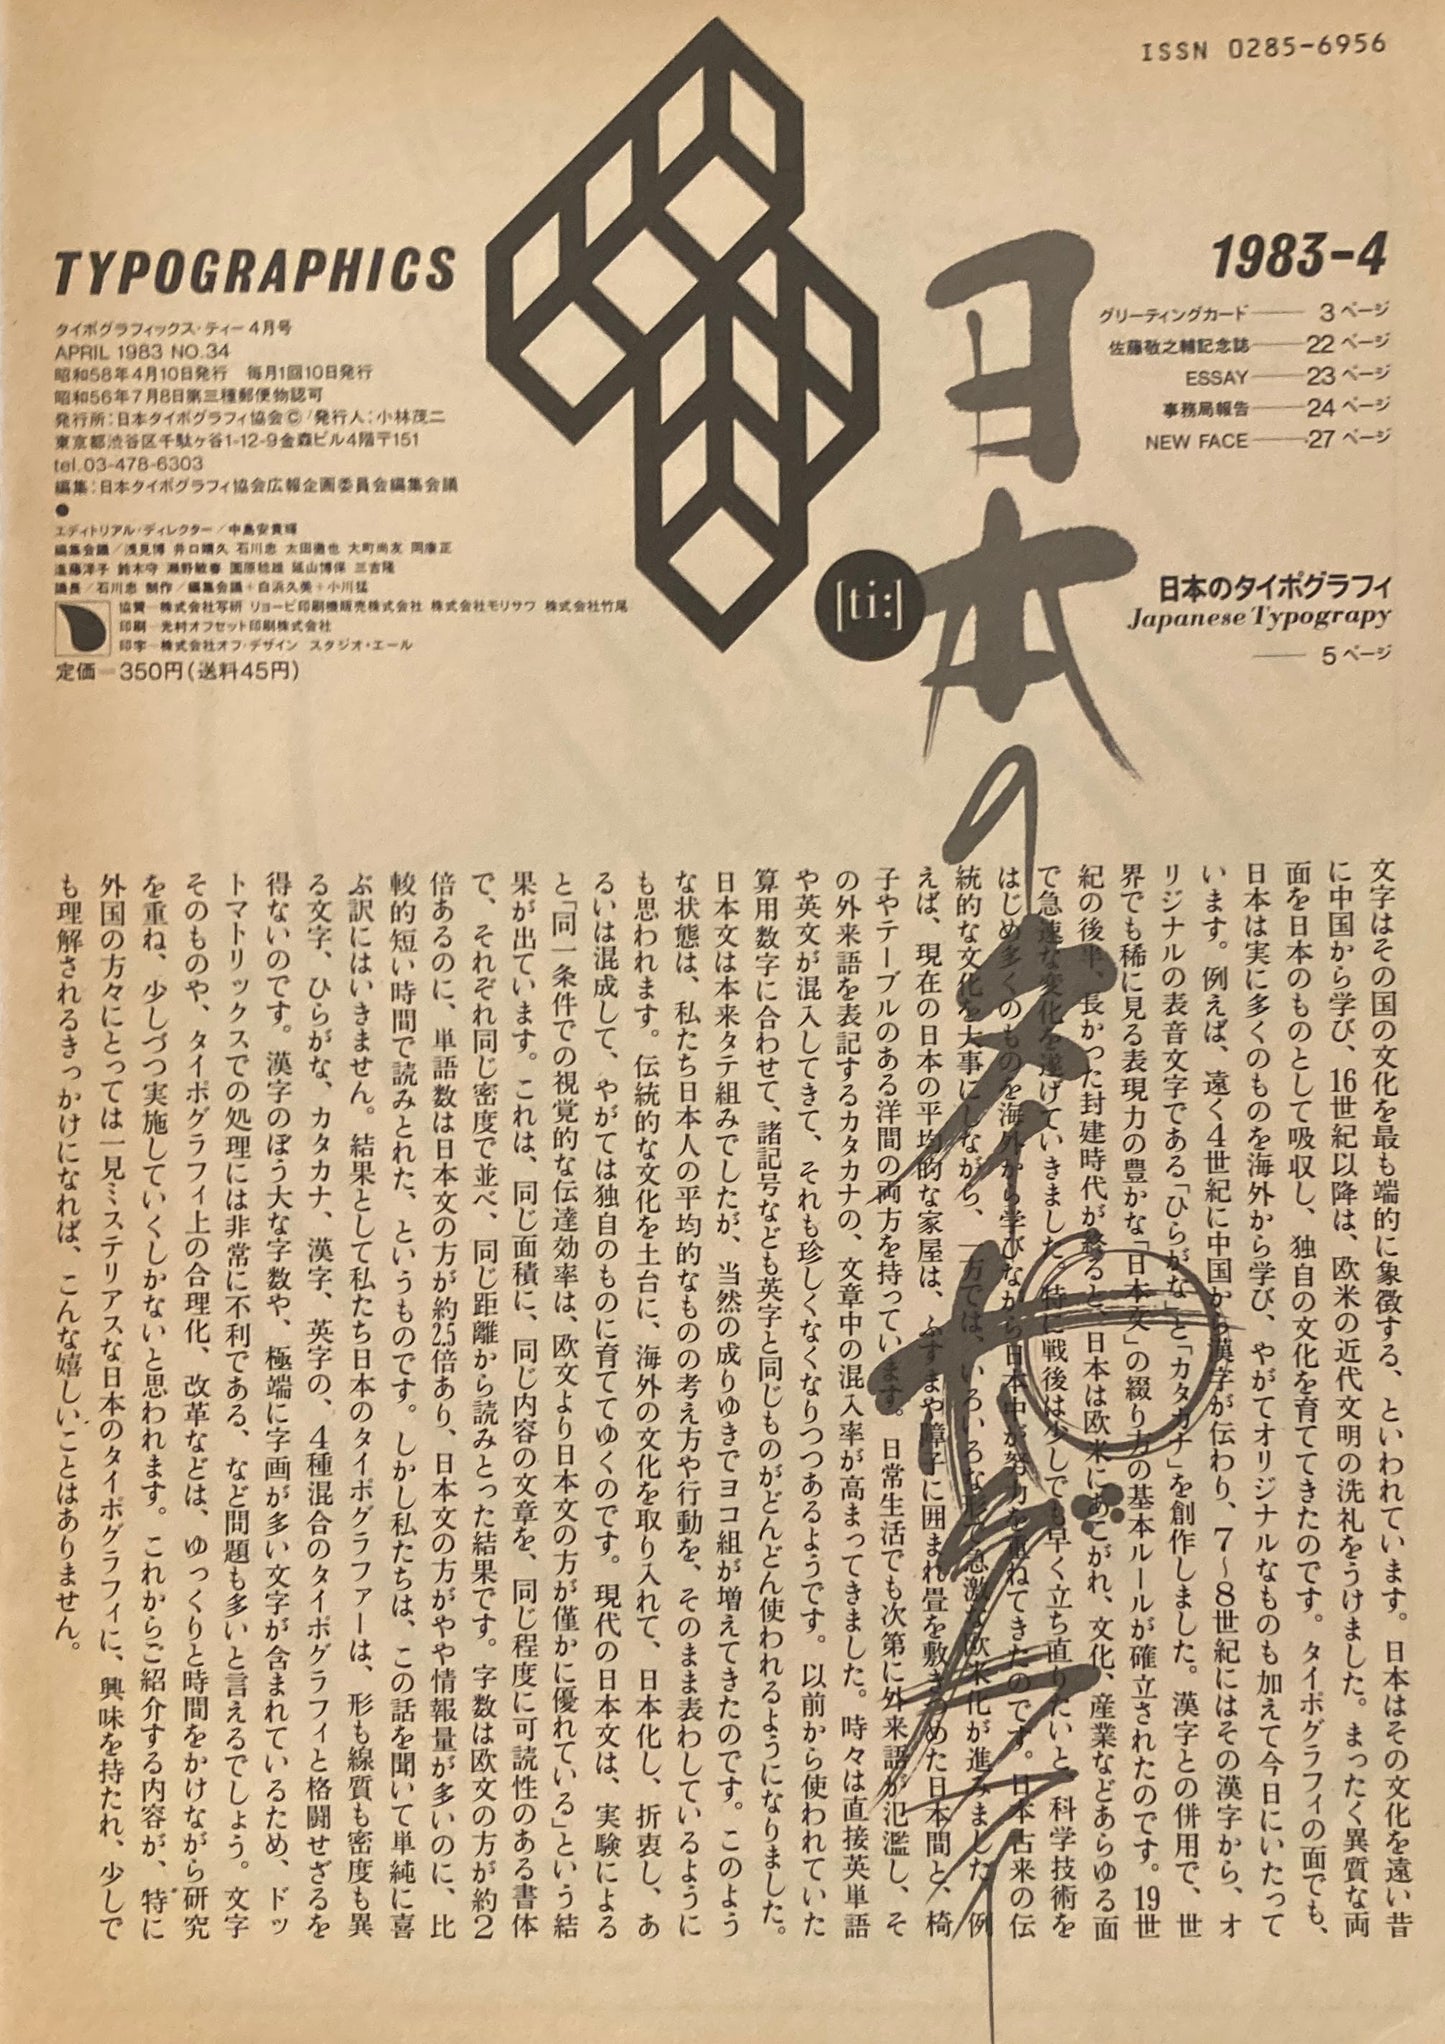 ISSN 0285-6956
TYPOGRAPHICS
タイポグラフィックス・ティー 4月号
APRIL 1983 NO.34
昭和58年4月10日発行　毎月1回10日発行
昭和56年7月8日第三種郵便物認可
発行所:日本タイポグラフィ協会©/発行人:小林茂二
東京都渋谷区千駄ヶ谷1-12-9金森ビル4階〒151
tel.03-478-6303
編集:日本タイポグラフィ協会広報企画委員会編集会議
●
エディトリアル・ディレクター/中島安貴輝
編集会議/浅見博 井口晴久 石川忠 太田徹也 大町尚友 岡康正
進藤洋子 鈴木守 瀬野敏春 園原稔雄 延山博保 三吉隆
議長/石川忠 制作/編集会議+白浜久美+小川猛
協賛─株式会社写研 リョービ印刷機販売株式会社 株式会社モリサワ 株式会社竹尾
印刷─光村オフセット印刷株式会社
印字─株式会社オフ・デザイン スタジオ・エール
定価─350円(送料45円)
[ti:]
日本のタイポグラフィ
1983-4
グリーティングカード──3ページ
佐藤敬之輔記念誌──22ページ
ESSAY──23ページ
事務局報告──24ページ
NEW FACE──27ページ
日本のタイポグラフィ
Japanese Typograpy
──5ページ
文字はその国の文化を最も端的に象徴する、といわれています。日本はその文化を遠い昔
に中国から学び、16世紀以降は、欧米の近代文明の洗礼をうけました。まったく異質な両
面を日本のものとして吸収し、独自の文化を育ててきたのです。タイポグラフィの面でも、
日本は実に多くのものを海外から学び、やがてオリジナルなものも加えて今日にいたって
います。例えば、遠く4世紀に中国から漢字が伝わり、7～8世紀にはその漢字から、オ
リジナルの表音文字である「ひらがな」と「カタカナ」を創作しました。漢字との併用で、世
界でも稀に見る表現力の豊かな「日本文」の綴り方の基本ルールが確立されたのです。19世
紀の後半、長かった封建時代が終ると、日本は欧米にあこがれ、文化、産業などあらゆる面
で急速な変化を遂げていきました。特に戦後は少しでも早く立ち直りたいと、科学技術を
はじめ多くのものを海外から学びながら日本中が努力を重ねてきたのです。日本古来の伝
統的な文化を大事にしながら、一方では、いろいろな形で急激な欧米化が進みました。例
えば、現在の日本の平均的な家屋は、ふすまや障子に囲まれ畳を敷きつめた日本間と、椅
子やテーブルのある洋間の両方を持っています。日常生活でも次第に外来語が氾濫し、そ
の外来語を表記するカタカナの、文章中の混入率が高まってきました。時々は直接英単語
や英文が混入してきて、それも珍しくなくなりつつあるようです。以前から使われていた
算用数字に合わせて、諸記号なども英字と同じものがどんどん使われるようになりました。
日本文は本来タテ組みでしたが、当然の成りゆきでヨコ組が増えてきたのです。このよう
な状態は、私たち日本人の平均的なものの考え方や行動を、そのまま表わしているように
も思われます。伝統的な文化を土台に、海外の文化を取り入れて、日本化し、折衷し、あ
るいは混成して、やがては独自のものに育ててゆくのです。現代の日本文は、実験による
と「同一条件での視覚的な伝達効率は、欧文より日本文の方が僅かに優れている」という結
果が出ています。これは、同じ面積に、同じ内容の文章を、同じ程度に可読性のある書体
で、それぞれ同じ密度で並べ、同じ距離から読みとった結果です。字数は欧文の方が約2
倍あるのに、単語数は日本文の方が約2.5倍あり、日本文の方がやや情報量が多いのに、比
較的短い時間で読みとれた、というものです。しかし私たちは、この話を聞いて単純に喜
ぶ訳にはいきません。結果として私たち日本のタイポグラファーは、形も線質も密度も異
る文字、ひらがな、カタカナ、漢字、英字の、4種混合のタイポグラフィと格闘せざるを
得ないのです。漢字のぼう大な字数や、極端に字画が多い文字が含まれているため、ドッ
トマトリックスでの処理には非常に不利である、など問題も多いと言えるでしょう。文字
そのものや、タイポグラフィ上の合理化、改革などは、ゆっくりと時間をかけながら研究
を重ね、少しづつ実施していくしかないと思われます。これからご紹介する内容が、特に
外国の方々にとっては一見ミステリアスな日本のタイポグラフィに、興味を持たれ、少しで
も理解されるきっかけになれば、こんな嬉しいことはありません。